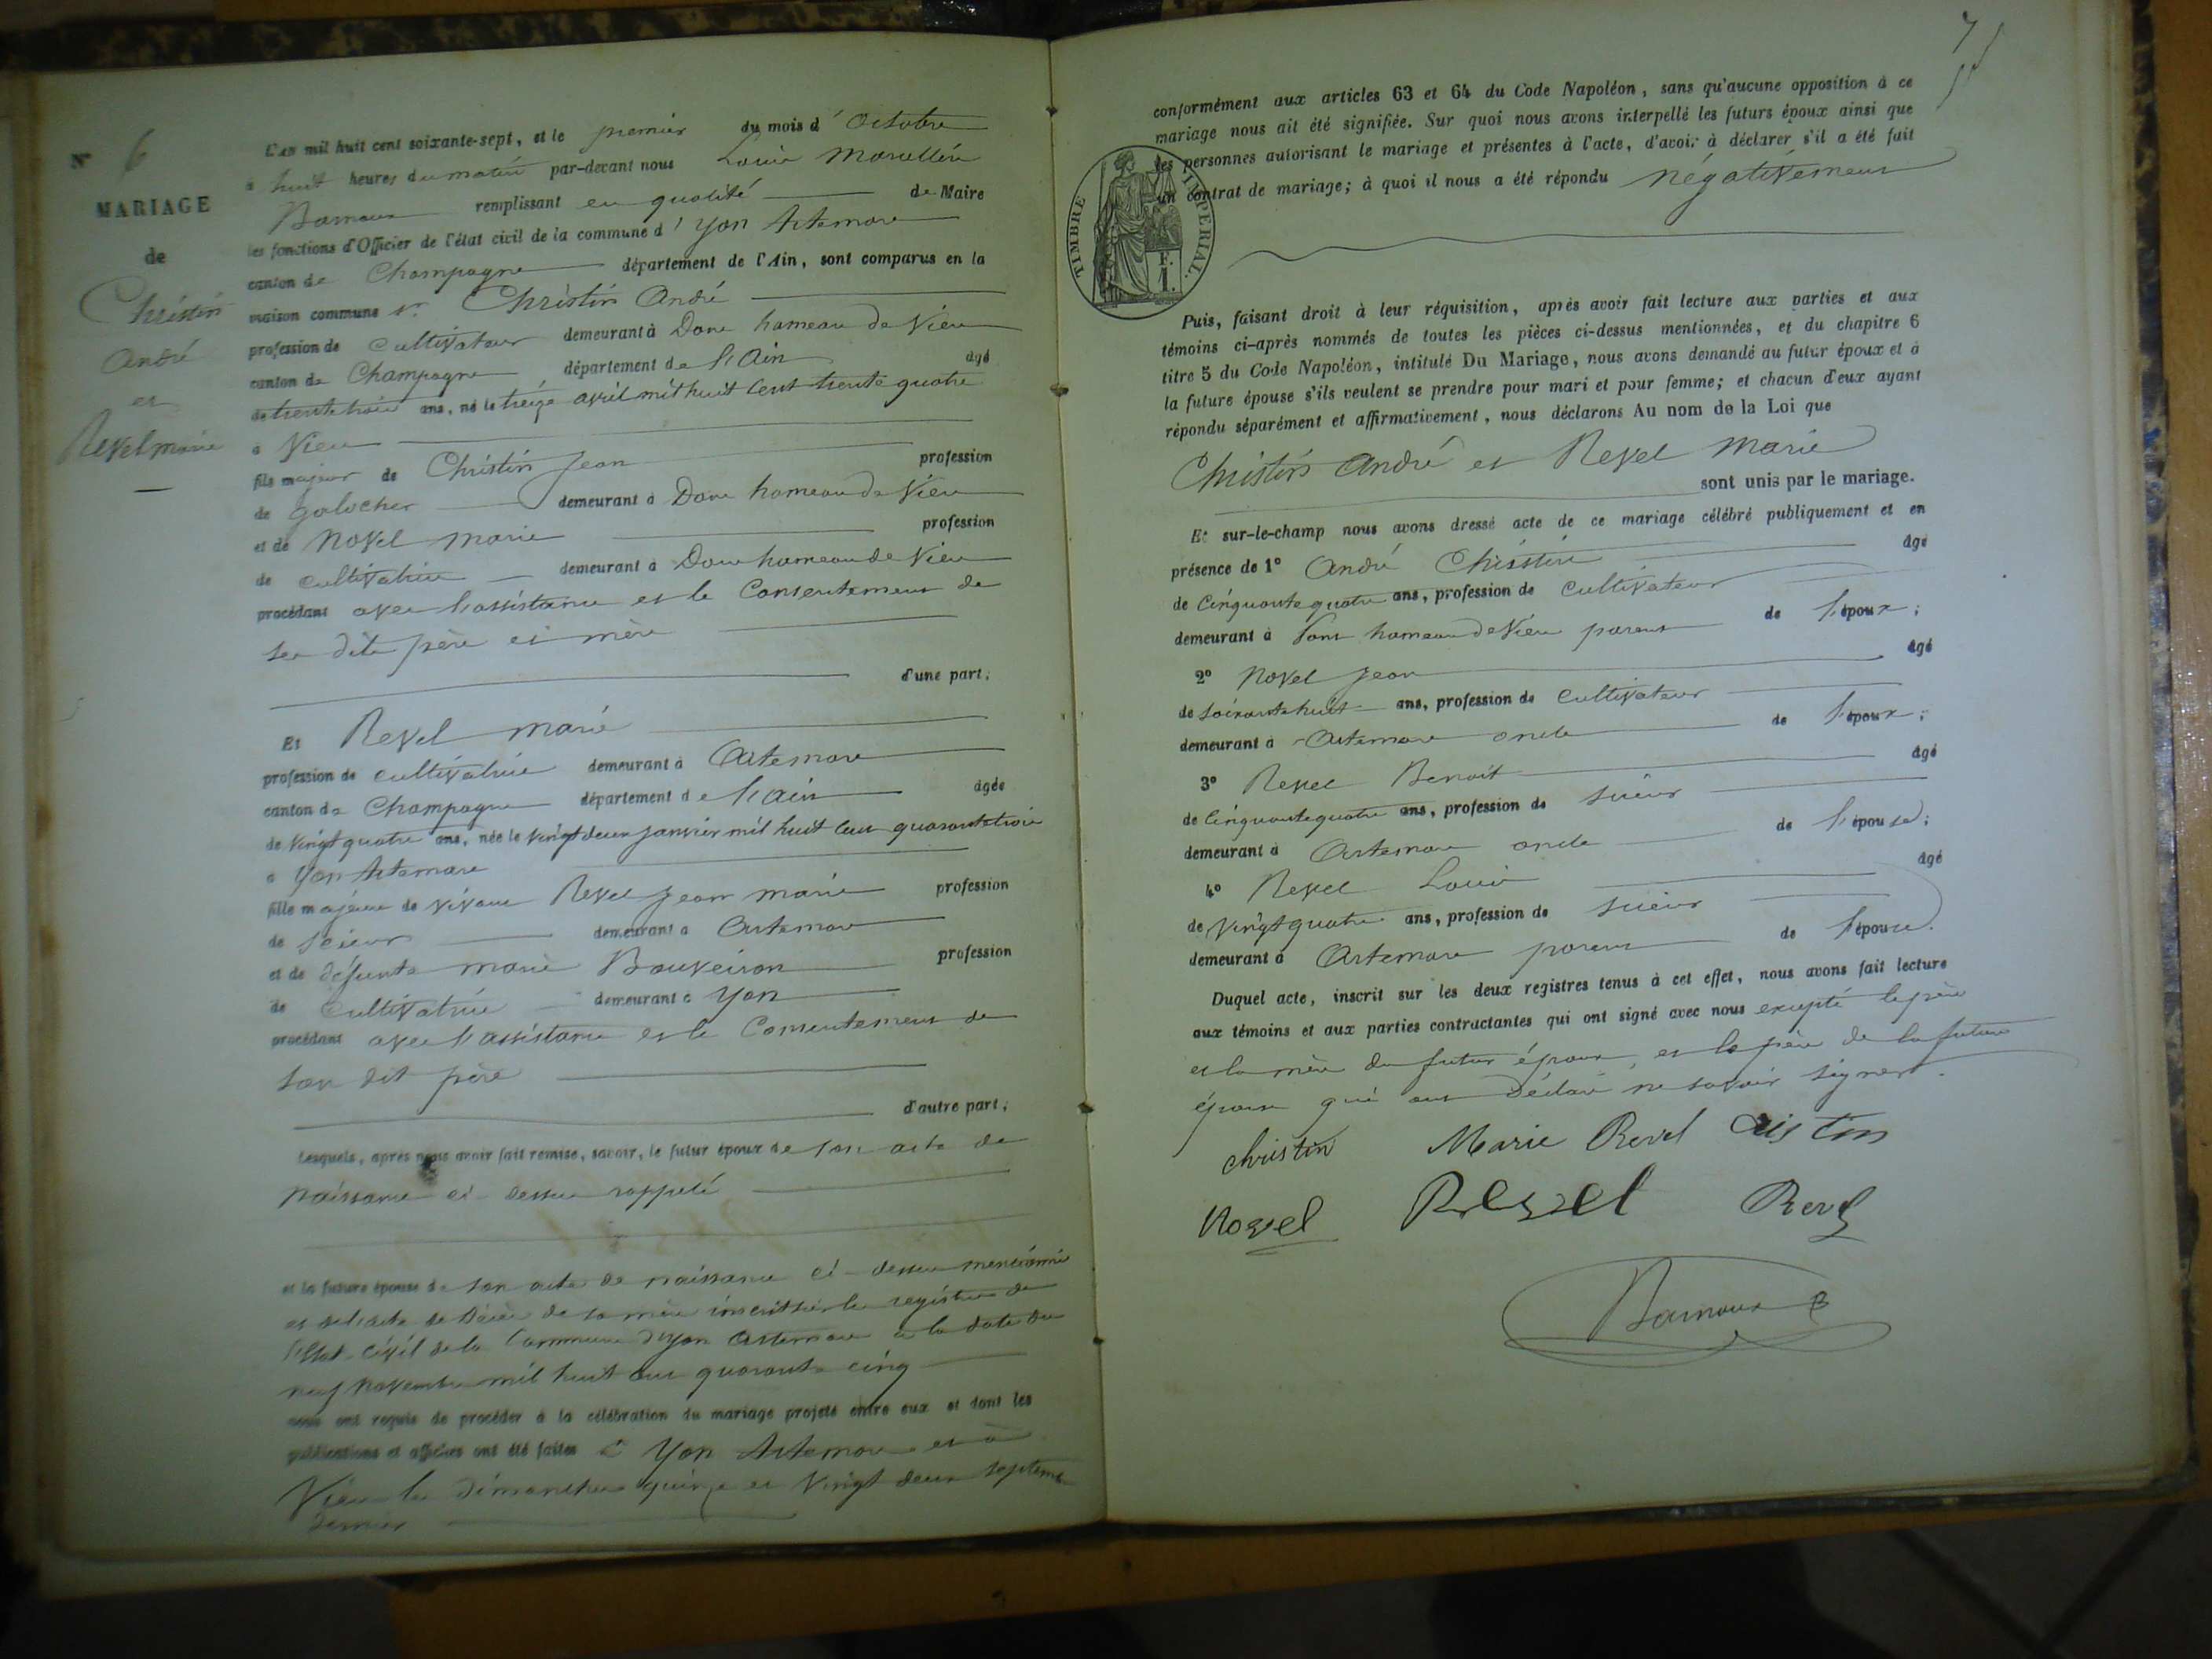 N° 6
MARIAGE
de
Christin
André
et
Revel marie
L'an mil huit cent soixante-sept, et le premier du mois d'Octobre
à huit heures du matin par-devant nous Louis Marcellin
Barnoux remplissant en qualité de Maire
les fonctions d'Officier de l'état civil de la commune d'Yon Artemare
canton de Champagne département de l'Ain, sont comparus en la
maison commune Sr. Christin André
profession de cultivateur demeurant à Don hameau de Vieu
canton de Champagne département de l'Ain âgé
de trente trois ans, né le treize avril mil huit cent trente quatre
à Vieu
fils majeur de Christin Jean profession
de galocher demeurant à Don hameau de Vieu
et de Novel marie profession
de cultivatrice demeurant à Don hameau de Vieu
procédant avec l'assistance et le Consentement de
ses dits père et mère
d'une part;
Et Revel marie
profession de cultivatrice demeurant à Artemare
canton de Champagne département de l'Ain âgée
de vingt quatre ans, née le vingt deux janvier mil huit cent quarante trois
à Yon Artemare
fille majeure de vivant Revel Jean marie profession
de scieur demeurant à Artemare
et de défunte marie Bouveiron profession
de cultivatrice demeurant à Yon
procédant avec l'assistance et le Consentement de
son dit père
d'autre part;
Lesquels, après nous avoir fait remise, savoir, le futur époux de son acte de
naissance ci-dessus rappelé
et la future épouse de son acte de naissance ci-dessus mentionné
et de l'acte de décès de sa mère inscrit sur les registres de
l'Etat-civil de la Commune d'Yon Artemare à la date du
neuf novembre mil huit cent quarante cinq
nous ont requis de procéder à la célébration du mariage projeté entre eux et dont les
publications et affiches ont été faites à Yon Artemare et à
Vieu les dimanches quinze et vingt deux septembre
dernier
7
conformément aux articles 63 et 64 du Code Napoléon, sans qu'aucune opposition à ce
mariage nous ait été signifiée. Sur quoi nous avons interpellé les futurs époux ainsi que
les personnes autorisant le mariage et présentes à l'acte, d'avoir à déclarer s'il a été fait
un contrat de mariage; à quoi il nous a été répondu négativement
TIMBRE IMPERIAL.
F.
1.
Puis, faisant droit à leur réquisition, après avoir fait lecture aux parties et aux
témoins ci-après nommés de toutes les pièces ci-dessus mentionnées, et du chapitre 6
titre 5 du Code Napoléon, intitulé Du Mariage, nous avons demandé au futur époux et à
la future épouse s'ils veulent se prendre pour mari et pour femme; et chacun d'eux ayant
répondu séparément et affirmativement, nous déclarons Au nom de la Loi que
Christin André et Revel Marie
sont unis par le mariage.
Et sur-le-champ nous avons dressé acte de ce mariage célébré publiquement et en
présence de 1° André Christin âgé
de cinquante quatre ans, profession de cultivateur
demeurant à hameau de Vieu parent de l'époux;
2° Novel Jean âgé
de soixante huit ans, profession de cultivateur
demeurant à Artemare oncle de l'époux;
3° Revel Benoit âgé
de cinquante quatre ans, profession de scieur
demeurant à Artemare oncle de l'épouse;
4° Revel Louis âgé
de vingt quatre ans, profession de scieur
demeurant à Artemare parent de l'épouse.
Duquel acte, inscrit sur les deux registres tenus à cet effet, nous avons fait lecture
aux témoins et aux parties contractantes qui ont signé avec nous excepté le père
et la mère du futur époux, et le père de la future
épouse qui ont déclaré ne savoir signer.
christin Marie Revel Cristin
Novel Revel Revel
Barnoux